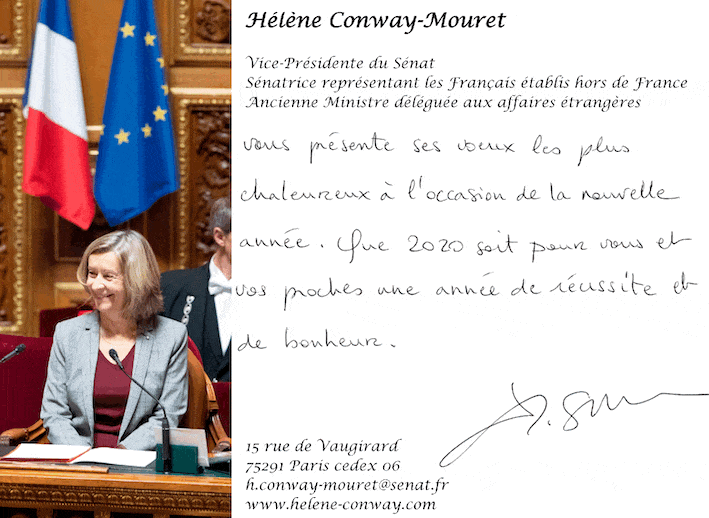 Hélène Conway-Mouret
Vice-Présidente du Sénat
Sénatrice représentant les Français établis hors de France
Ancienne Ministre déléguée aux affaires étrangères
vous présente ses vœux les plus
chaleureux à l'occasion de la nouvelle
année. Que 2020 soit pour vous et
vos proches une année de réussite et
de bonheur.
15 rue de Vaugirard
75291 Paris cedex 06
h.conway-mouret@senat.fr
www.helene-conway.com